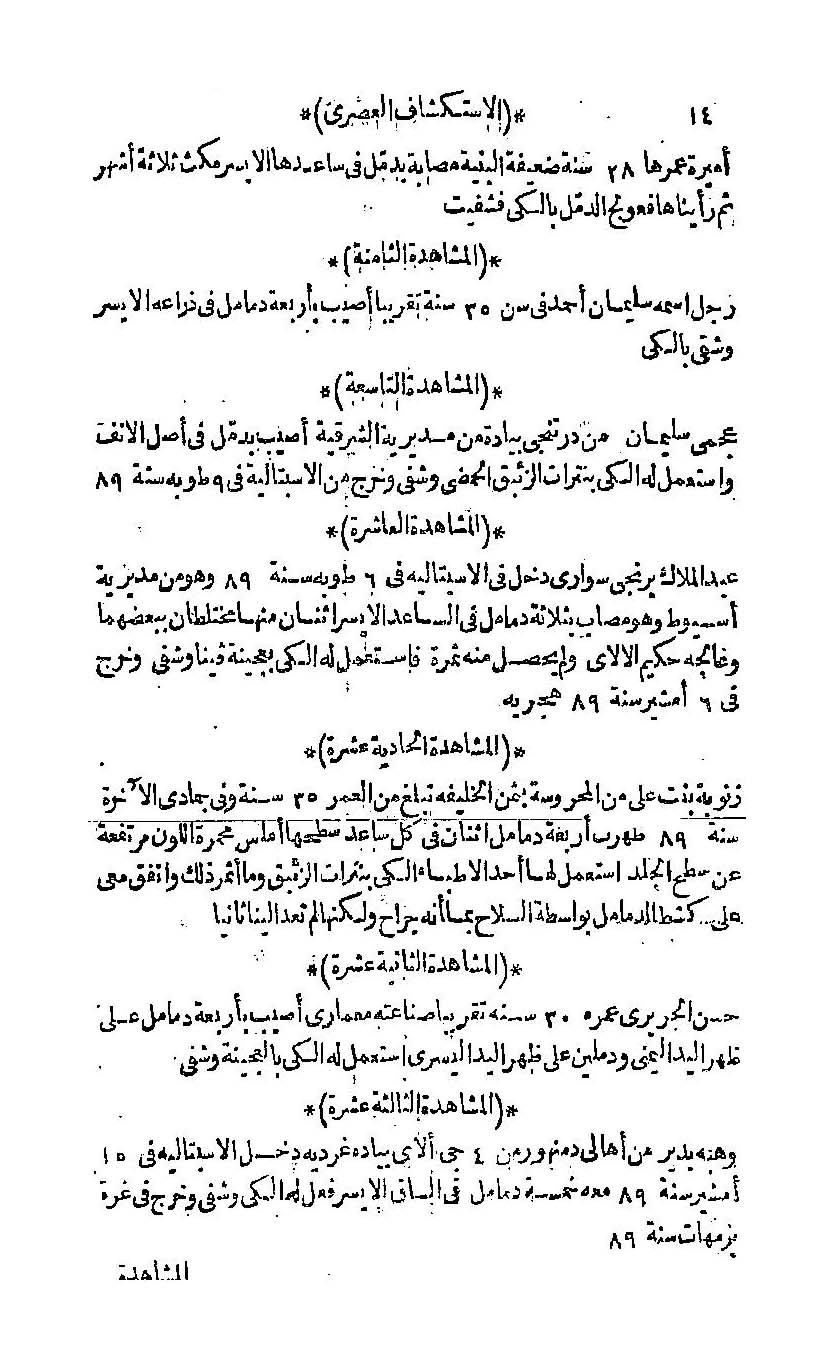 ١٤ *(الاستكشاف العصرى)*
أميرة عمرها ٢٨ سنة ضعيفة البنية مصابة بدمّل فى ساعدها الايسر مكث ثلاثة أشهر
ثم رأيناها فعولج الدمّل بالكى فشفيت
*(المشاهدة الثامنة)*
رجل اسمه سليمان أحمد فى سن ٣٥ سنة تقريبا أصيب بأربعة دمامل فى ذراعه الايسر
وشفى بالكى
*(المشاهدة التاسعة)*
عجمى سليمان من درتنجى بيادة من مديرية الشرقية أصيب بدمّل فى أصل الانف
واستعمل له الكى بنترات الزئبق الحمضى وشفى وخرج من الاسبتالية فى ٩ طوبه سنة ٨٩
*(المشاهدة العاشرة)*
عبد الملاك برنجى سوارى دخل فى الاسبتاليه فى ٦ طوبه سنة ٨٩ وهو من مديرية
أسيوط وهو مصاب بثلاثة دمامل فى الساعد الايسر اثنان منها مختلطان ببعضهما
وعالجه حكيم الالاى ولم يحصل منه ثمرة فاستعمل له الكى بعجينة ڤينا وشفى وخرج
فى ٦ أمشير سنة ٨٩ هجريه
*(المشاهدة الحادية عشرة)*
زنوبة بنت على من المحروسة بثمن الخليفه تبلغ من العمر ٣٥ سنة وفى جمادى الآخرة
سنة ٨٩ ظهرت أربعة دمامل اثنان فى كل ساعد سطحها أملس محمرة اللون مرتفعة
عن سطح الجلد استعمل لها أحد الاطباء الكى بنترات الزئبق وما أثمر ذلك واتفق معى
على كشط الدمامل بواسطة السلاح بما أنه جراح ولكنها لم تعد الينا ثانيا
*(المشاهدة الثانية عشرة)*
حسن الجريرى عمره ٣٠ سنه تقريبا صناعته معمارى أصيب بأربعة دمامل على
ظهر اليد اليمنى ودملين على ظهر اليد اليسرى استعمل له الكى بالعجينة وشفى
*(المشاهدة الثالثة عشرة)*
وهبه بدير من أهالى دمنهور من ٤ جى ألاى بياده غرديه دخل الاسبتاليه فى ١٥
أمشير سنة ٨٩ معه خمسة دمامل فى الساق الايسر فعل له الكى وشفى وخرج فى غرة
برمهات سنة ٨٩
المشاهدة